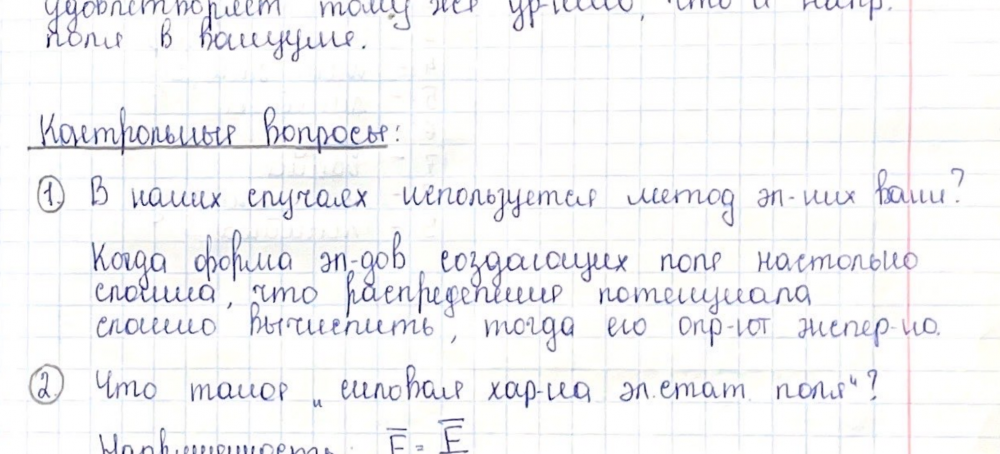 удовлетворяет тому же ур-нию, что и напр.
поля в вакууме.
Контрольные вопросы:
① В каких случаях используется метод эл-ких ванн?
Когда форма эл-дов создающих поля настолько
сложна, что распределение потенциала
сложно вычислить, тогда его опр-ют экспер-но.
② Что такое „силовая хар-ка эл.стат. поля"?
Напряженность: E̅ = F̅